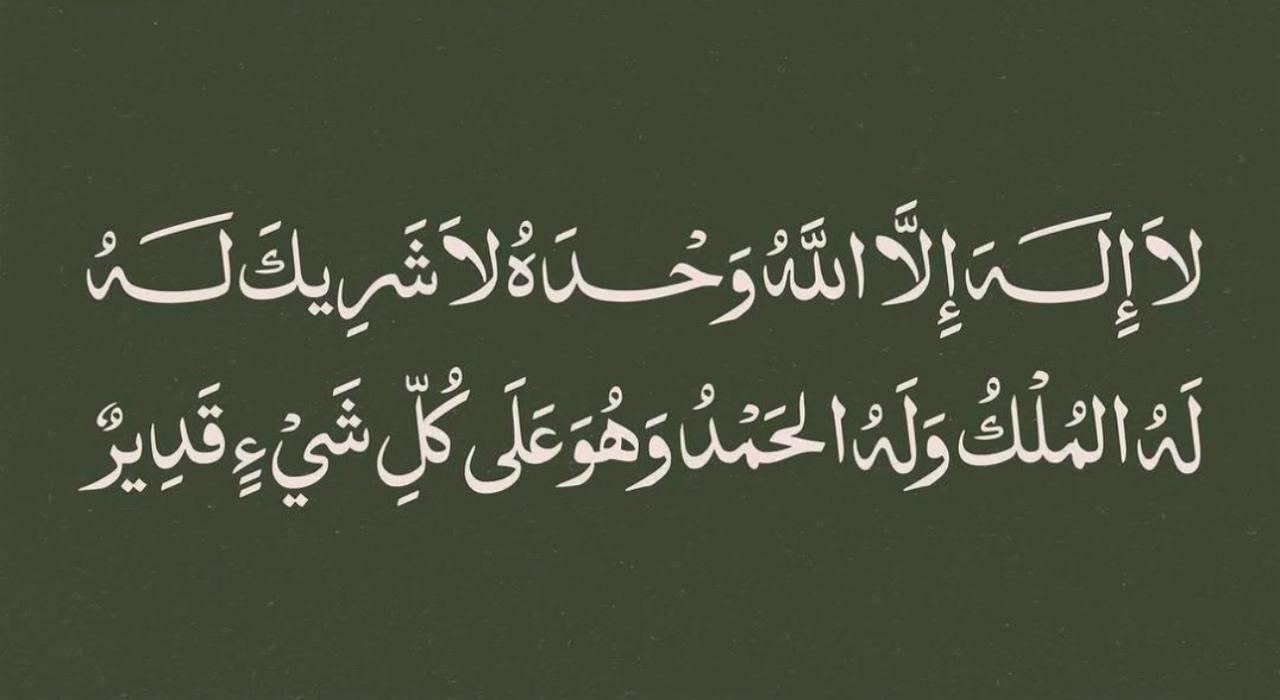 لاَ إِلَهَ إِلَّا اللَّهُ وَحْدَهُ لاَ شَرِيكَ لَهُ
لَهُ المُلْكُ وَلَهُ الحَمْدُ وَهُوَ عَلَى كُلِّ شَيْءٍ قَدِيرٌ